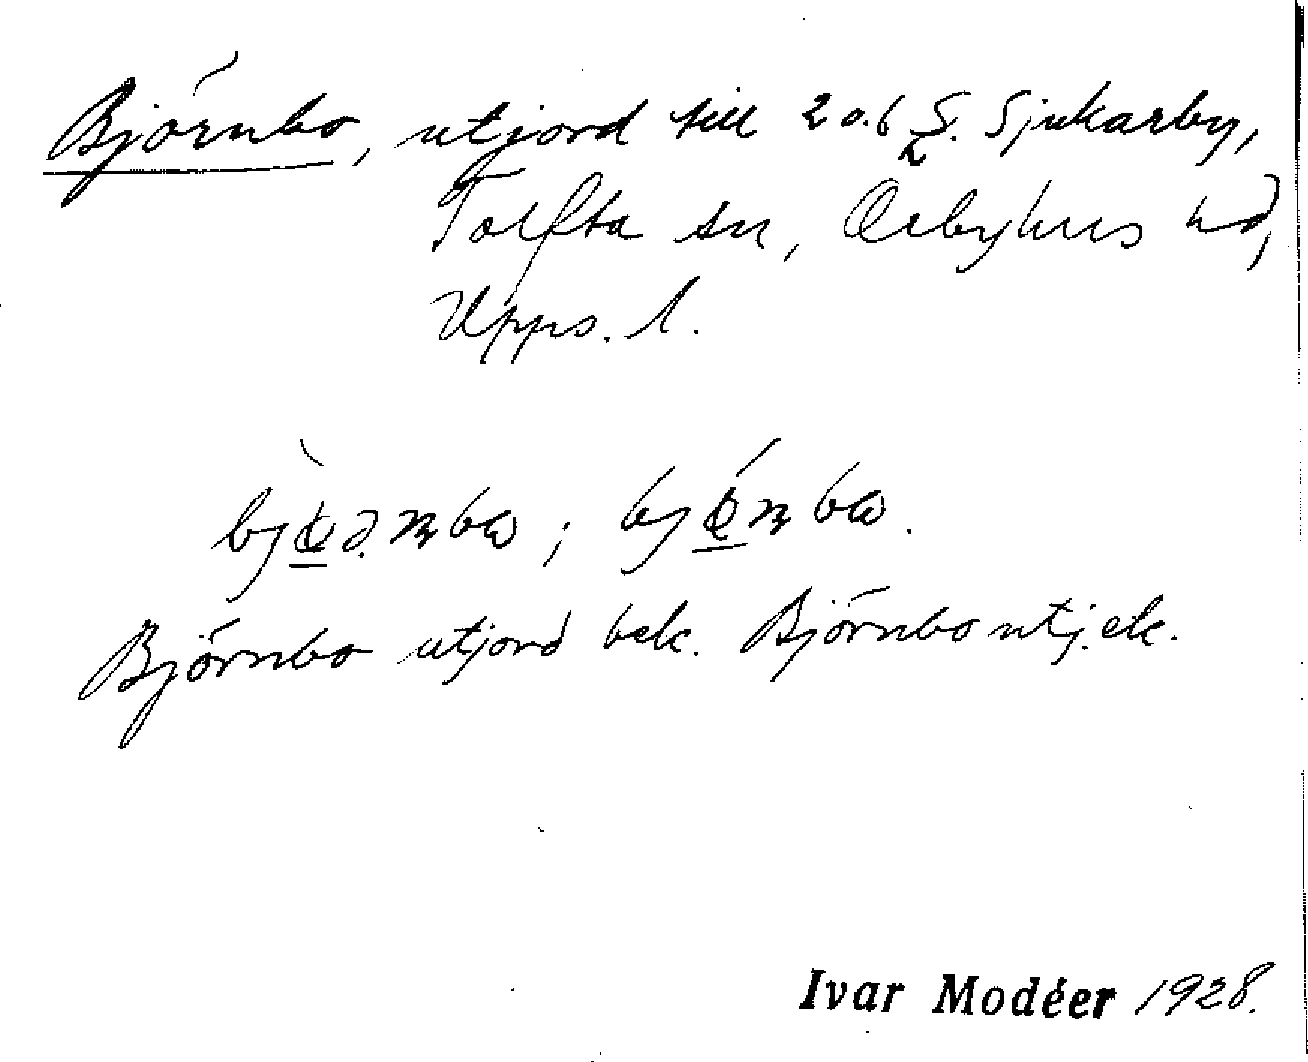 Björnbo, utjord till 2 o. 6 S. Sjukarby,
Tolfta sn, Örbyhus hd,
Upps. l.
Björnbo utjord bek. Björnbo utj. ek.
Ivar Modéer 1928.